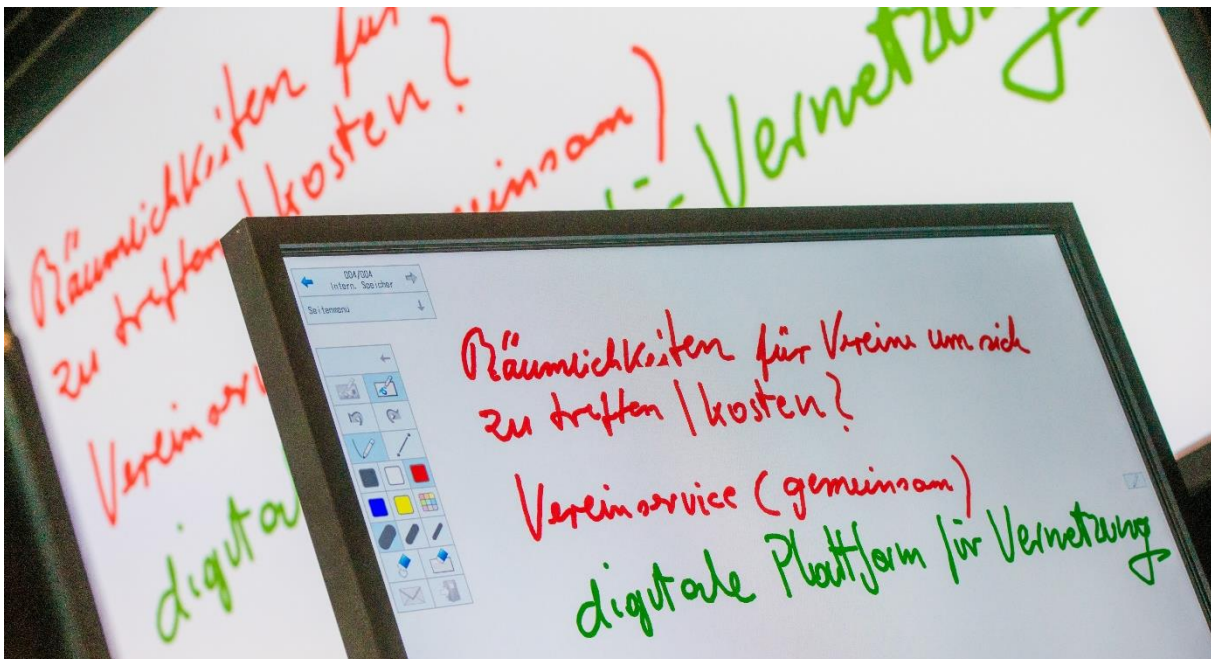 Räumlichkeiten für
zu treffen | kosten?
Vereinservi
einsam)
digital
für Vernetzung
004/004
Intern. Speicher
Seitenmenü
Räumlichkeiten für Vereine um sich
zu treffen | kosten?
Vereinservice (gemeinsam)
digitale Plattform für Vernetzung